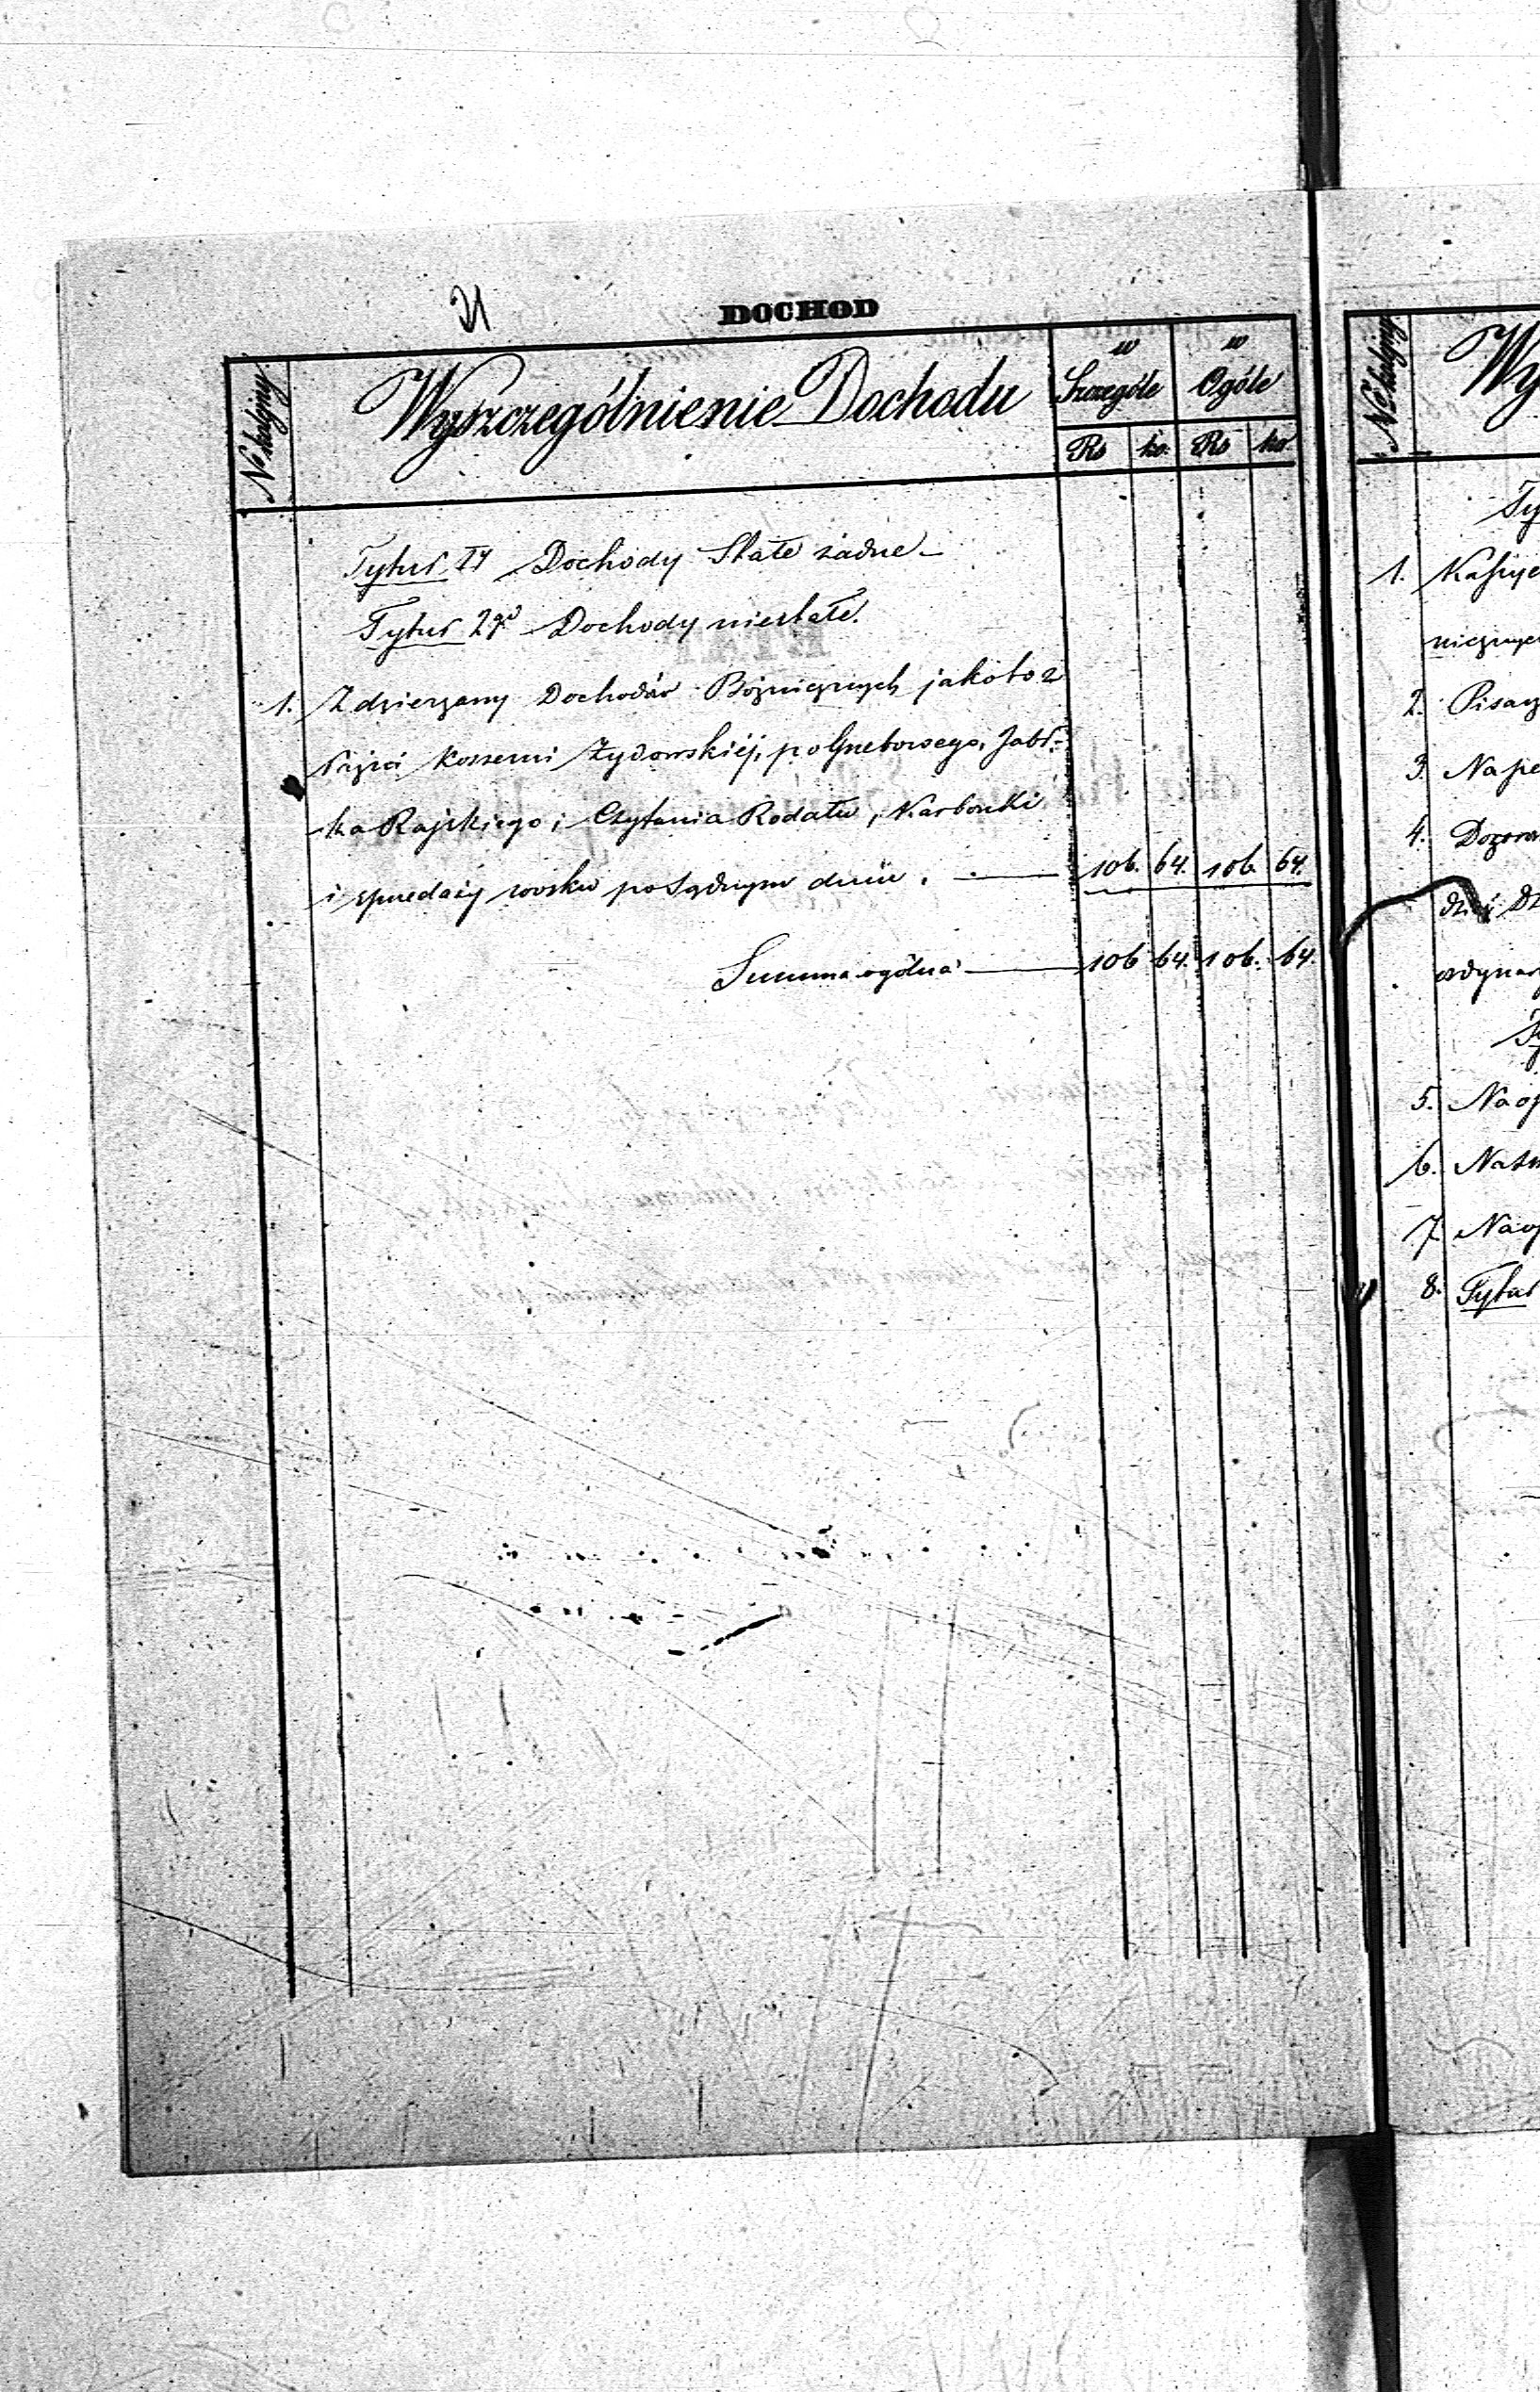 21
DOCHOD
No kolejny
Wyszczególnienie Dochodu
w Szczególe
w Ogóle
Rs ko. Rs ko.
Tytuł Dochody Stałe żadne
Tytuł 2gi Dochody niestałe.
1. Z dzierzawy Dochodów Bóżnicznych jakoto z
Koszerni Żydowskiéj, poGrzebowego, Jabł-
ka Rajskiego, Czytania Rodału, Skarbonki
i sprzedaży wosku po Sądnym dniu. 106. 64. 106. 64.
Summa ogólna 106 64. 106. 64.
No kolejny
Wy
1.
2. Pisarz
3. Na
4. Dozor
5. Na
6. Na
7. Na
8. Tytuł